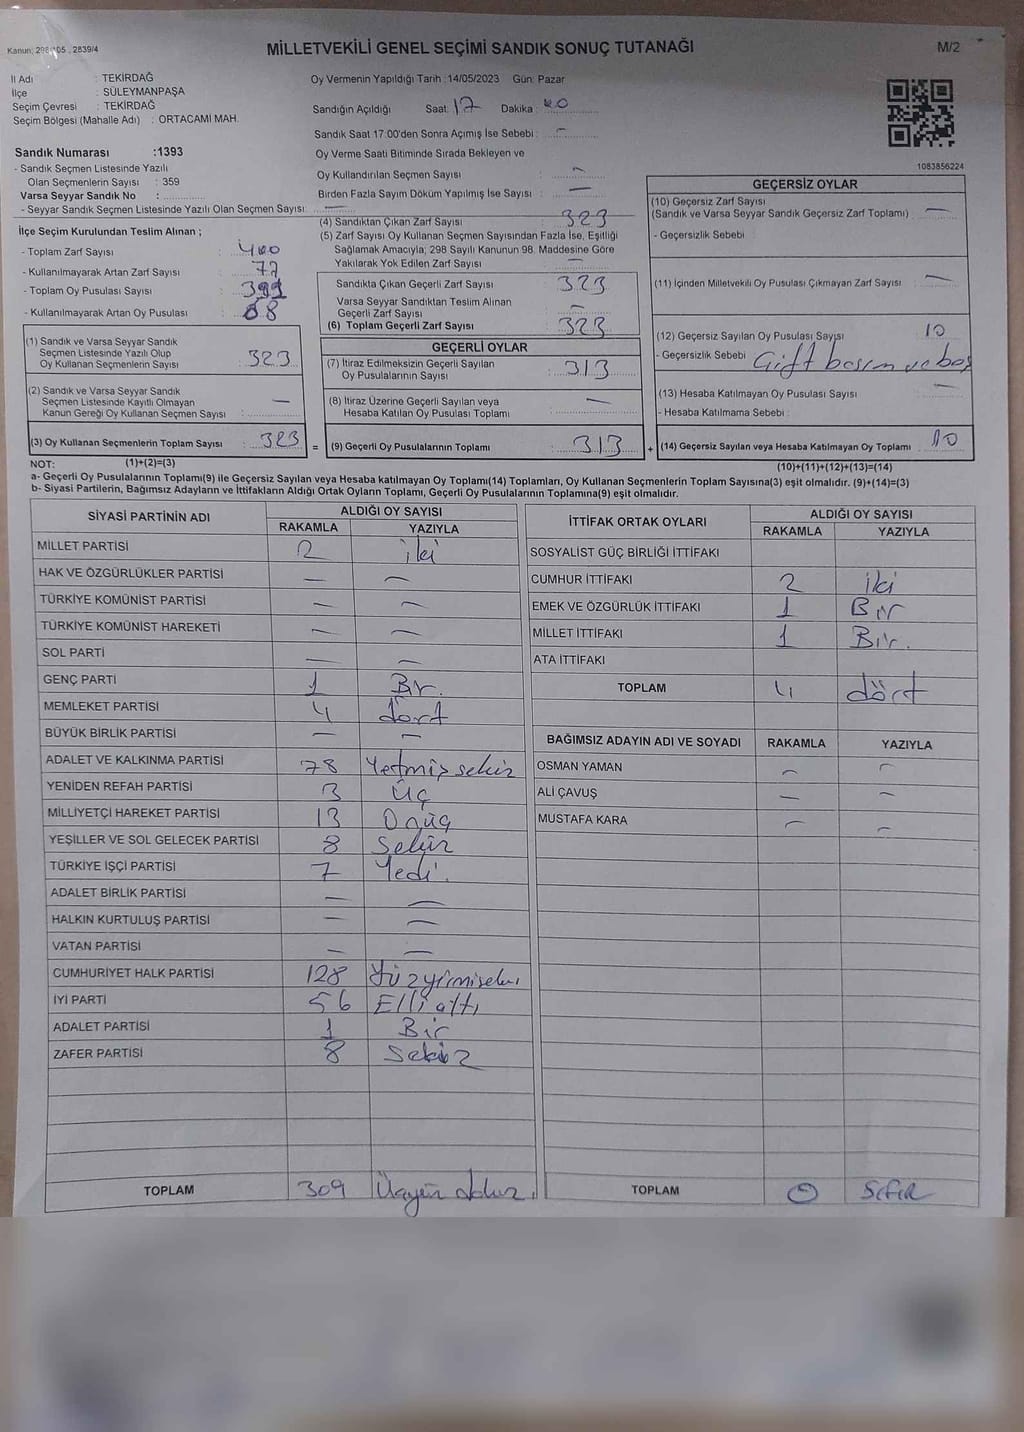 Kanun: 298/105 , 2839/4
MİLLETVEKİLİ GENEL SEÇİMİ SANDIK SONUÇ TUTANAĞI
M/2
İl Adı : TEKİRDAĞ
İlçe : SÜLEYMANPAŞA
Seçim Çevresi : TEKİRDAĞ
Seçim Bölgesi (Mahalle Adı) : ORTACAMİ MAH.
Oy Vermenin Yapıldığı Tarih : 14/05/2023 Gün: Pazar
Sandığın Açıldığı Saat: 17 Dakika : 40
Sandık Saat 17:00'den Sonra Açımış İse Sebebi : –
Oy Verme Saati Bitiminde Sırada Bekleyen ve
Oy Kullandırılan Seçmen Sayısı : –
Birden Fazla Sayım Döküm Yapılmış İse Sayısı : –
1083856224
Sandık Numarası :1393
- Sandık Seçmen Listesinde Yazılı
Olan Seçmenlerin Sayısı : 359
Varsa Seyyar Sandık No :
- Seyyar Sandık Seçmen Listesinde Yazılı Olan Seçmen Sayısı: –
İlçe Seçim Kurulundan Teslim Alınan ;
- Toplam Zarf Sayısı : 400
- Kullanılmayarak Artan Zarf Sayısı : 77
- Toplam Oy Pusulası Sayısı :
- Kullanılmayarak Artan Oy Pusulası :
(1) Sandık ve Varsa Seyyar Sandık
Seçmen Listesinde Yazılı Olup
Oy Kullanan Seçmenlerin Sayısı : 323
(2) Sandık ve Varsa Seyyar Sandık
Seçmen Listesinde Kayıtlı Olmayan
Kanun Gereği Oy Kullanan Seçmen Sayısı : –
(3) Oy Kullanan Seçmenlerin Toplam Sayısı : 323 =
(4) Sandıktan Çıkan Zarf Sayısı : 323
(5) Zarf Sayısı Oy Kullanan Seçmen Sayısından Fazla İse, Eşitliği
Sağlamak Amacıyla; 298 Sayılı Kanunun 98. Maddesine Göre
Yakılarak Yok Edilen Zarf Sayısı : –
Sandıkta Çıkan Geçerli Zarf Sayısı : 323
Varsa Seyyar Sandıktan Teslim Alınan
Geçerli Zarf Sayısı : –
(6) Toplam Geçerli Zarf Sayısı : 323
GEÇERLİ OYLAR
(7) İtiraz Edilmeksizin Geçerli Sayılan
Oy Pusulalarının Sayısı : 313
(8) İtiraz Üzerine Geçerli Sayılan veya
Hesaba Katılan Oy Pusulası Toplamı : –
(9) Geçerli Oy Pusulalarının Toplamı : 313 +
GEÇERSİZ OYLAR
(10) Geçersiz Zarf Sayısı
(Sandık ve Varsa Seyyar Sandık Geçersiz Zarf Toplamı) : –
- Geçersizlik Sebebi :
(11) İçinden Milletvekili Oy Pusulası Çıkmayan Zarf Sayısı : –
(12) Geçersiz Sayılan Oy Pusulası Sayısı : 10
- Geçersizlik Sebebi : Çift basım ve boş
(13) Hesaba Katılmayan Oy Pusulası Sayısı : –
- Hesaba Katılmama Sebebi :
(14) Geçersiz Sayılan veya Hesaba Katılmayan Oy Toplamı : 10
NOT: (1)+(2)=(3)
(10)+(11)+(12)+(13)=(14)
a- Geçerli Oy Pusulalarının Toplamı(9) ile Geçersiz Sayılan veya Hesaba katılmayan Oy Toplamı(14) Toplamları, Oy Kullanan Seçmenlerin Toplam Sayısına(3) eşit olmalıdır. (9)+(14)=(3)
b- Siyasi Partilerin, Bağımsız Adayların ve İttifakların Aldığı Ortak Oyların Toplamı, Geçerli Oy Pusulalarının Toplamına(9) eşit olmalıdır.
SİYASİ PARTİNİN ADI ALDIĞI OY SAYISI
RAKAMLA YAZIYLA
MİLLET PARTİSİ 2 iki
HAK VE ÖZGÜRLÜKLER PARTİSİ – –
TÜRKİYE KOMÜNİST PARTİSİ – –
TÜRKİYE KOMÜNİST HAREKETİ – –
SOL PARTİ – –
GENÇ PARTİ 1 Bir.
MEMLEKET PARTİSİ 4 dört
BÜYÜK BİRLİK PARTİSİ – –
ADALET VE KALKINMA PARTİSİ 78 Yetmiş sekiz
YENİDEN REFAH PARTİSİ 3 Üç
MİLLİYETÇİ HAREKET PARTİSİ 13 Onüç
YEŞİLLER VE SOL GELECEK PARTİSİ 8 Sekiz
TÜRKİYE İŞÇİ PARTİSİ 7 Yedi.
ADALET BİRLİK PARTİSİ – –
HALKIN KURTULUŞ PARTİSİ – –
VATAN PARTİSİ – –
CUMHURİYET HALK PARTİSİ 128 Yüzyirmisekiz
İYİ PARTİ 56 Elli altı
ADALET PARTİSİ 1 Bir
ZAFER PARTİSİ 8 Sekiz
TOPLAM 309 Üçyüz dokuz.
İTTİFAK ORTAK OYLARI ALDIĞI OY SAYISI
RAKAMLA YAZIYLA
SOSYALİST GÜÇ BİRLİĞİ İTTİFAKI
CUMHUR İTTİFAKI 2 iki
EMEK VE ÖZGÜRLÜK İTTİFAKI 1 Bir
MİLLET İTTİFAKI 1 Bir.
ATA İTTİFAKI
TOPLAM 4 dört
BAĞIMSIZ ADAYIN ADI VE SOYADI RAKAMLA YAZIYLA
OSMAN YAMAN – –
ALİ ÇAVUŞ – –
MUSTAFA KARA – –
TOPLAM 0 Sıfır